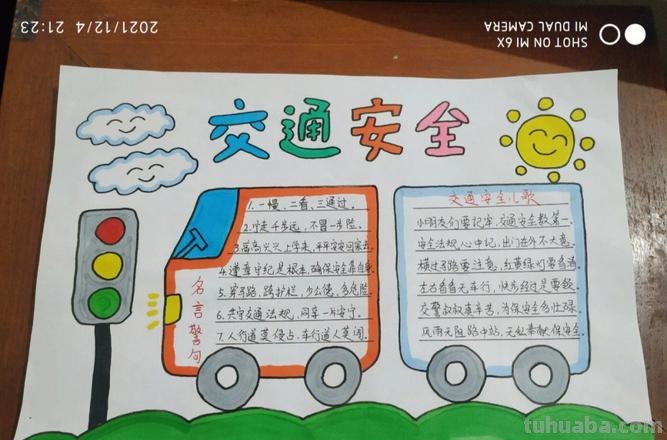 2021/12/4 21:23
SHOT ON MI 6X
MI DUAL CAMERA
交通安全
名言警句
1. 一慢、二看、三通过。
2. 宁走千步远，不冒一步险。
3. 高高兴兴上学来，平平安安回家去。
4. 遵章守纪是根本，确保安全靠自家
5. 穿马路，跨护栏，少公德，多危险。
6. 共守交通法规，同享一片安宁。
7. 人行道莫侵占，车行道人莫闯。
交通安全儿歌
小朋友们要记牢，交通安全数第一，
安全法规心中记，出门在外不大意。
横过马路要注意，红黄绿灯要看清，
左右看看无车行，快步经过是要领
交警叔叔真辛苦，为保安全多忙碌。
风雨无阻路中站，无私奉献保安全。
tuhuaba.com